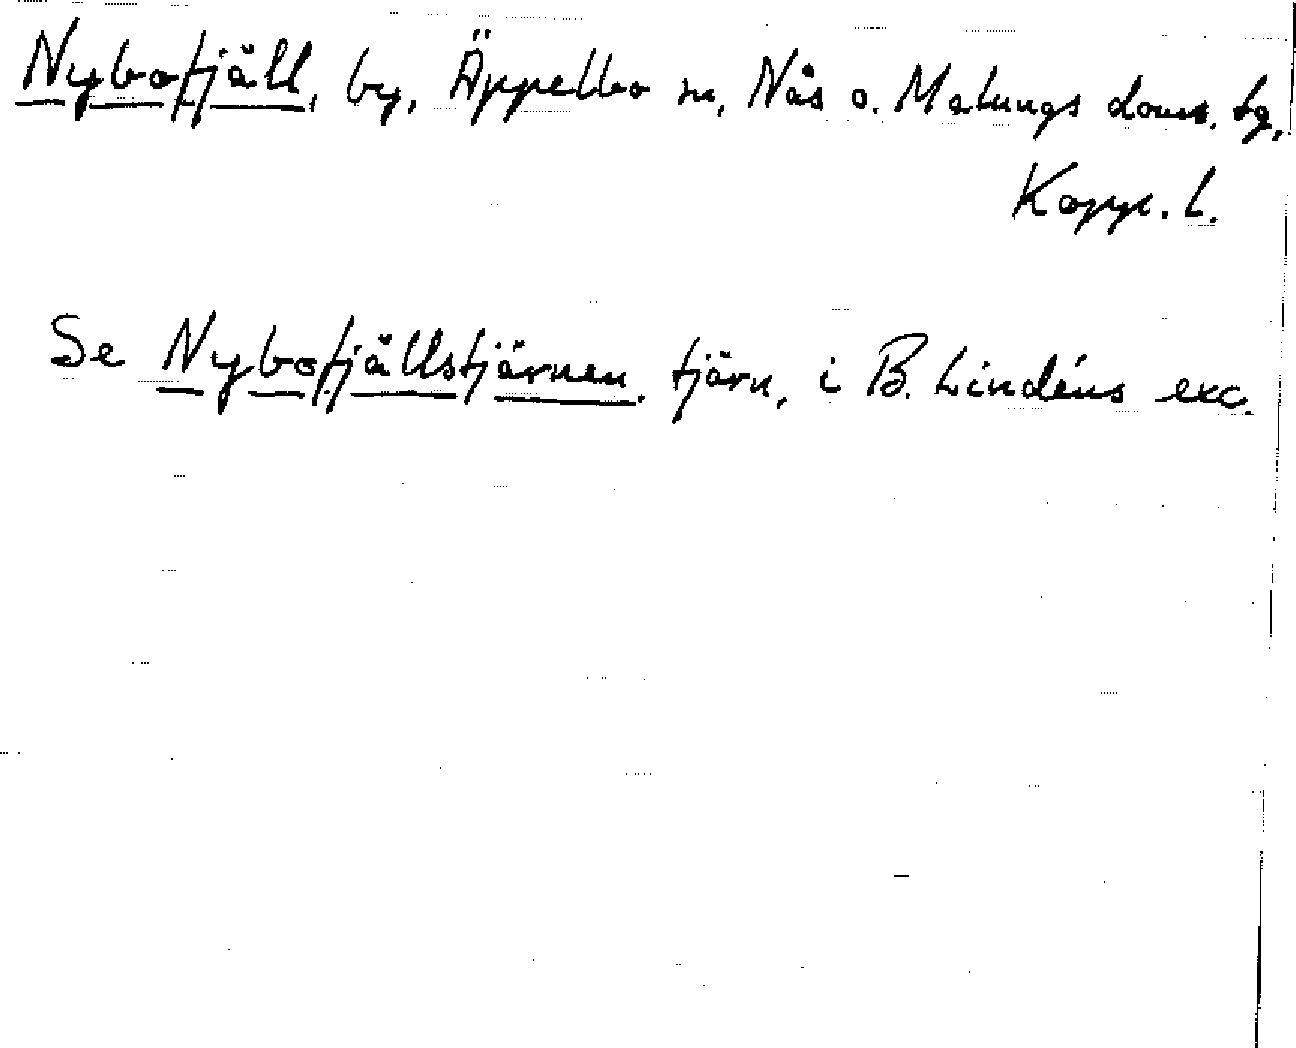 Nybofjäll, by, Äppelbo sn, Nås o. Malungs doms. tg,
Kopp. L.
Se Nybofjällstjärnen, tjärn, i B. Lindéns exc.